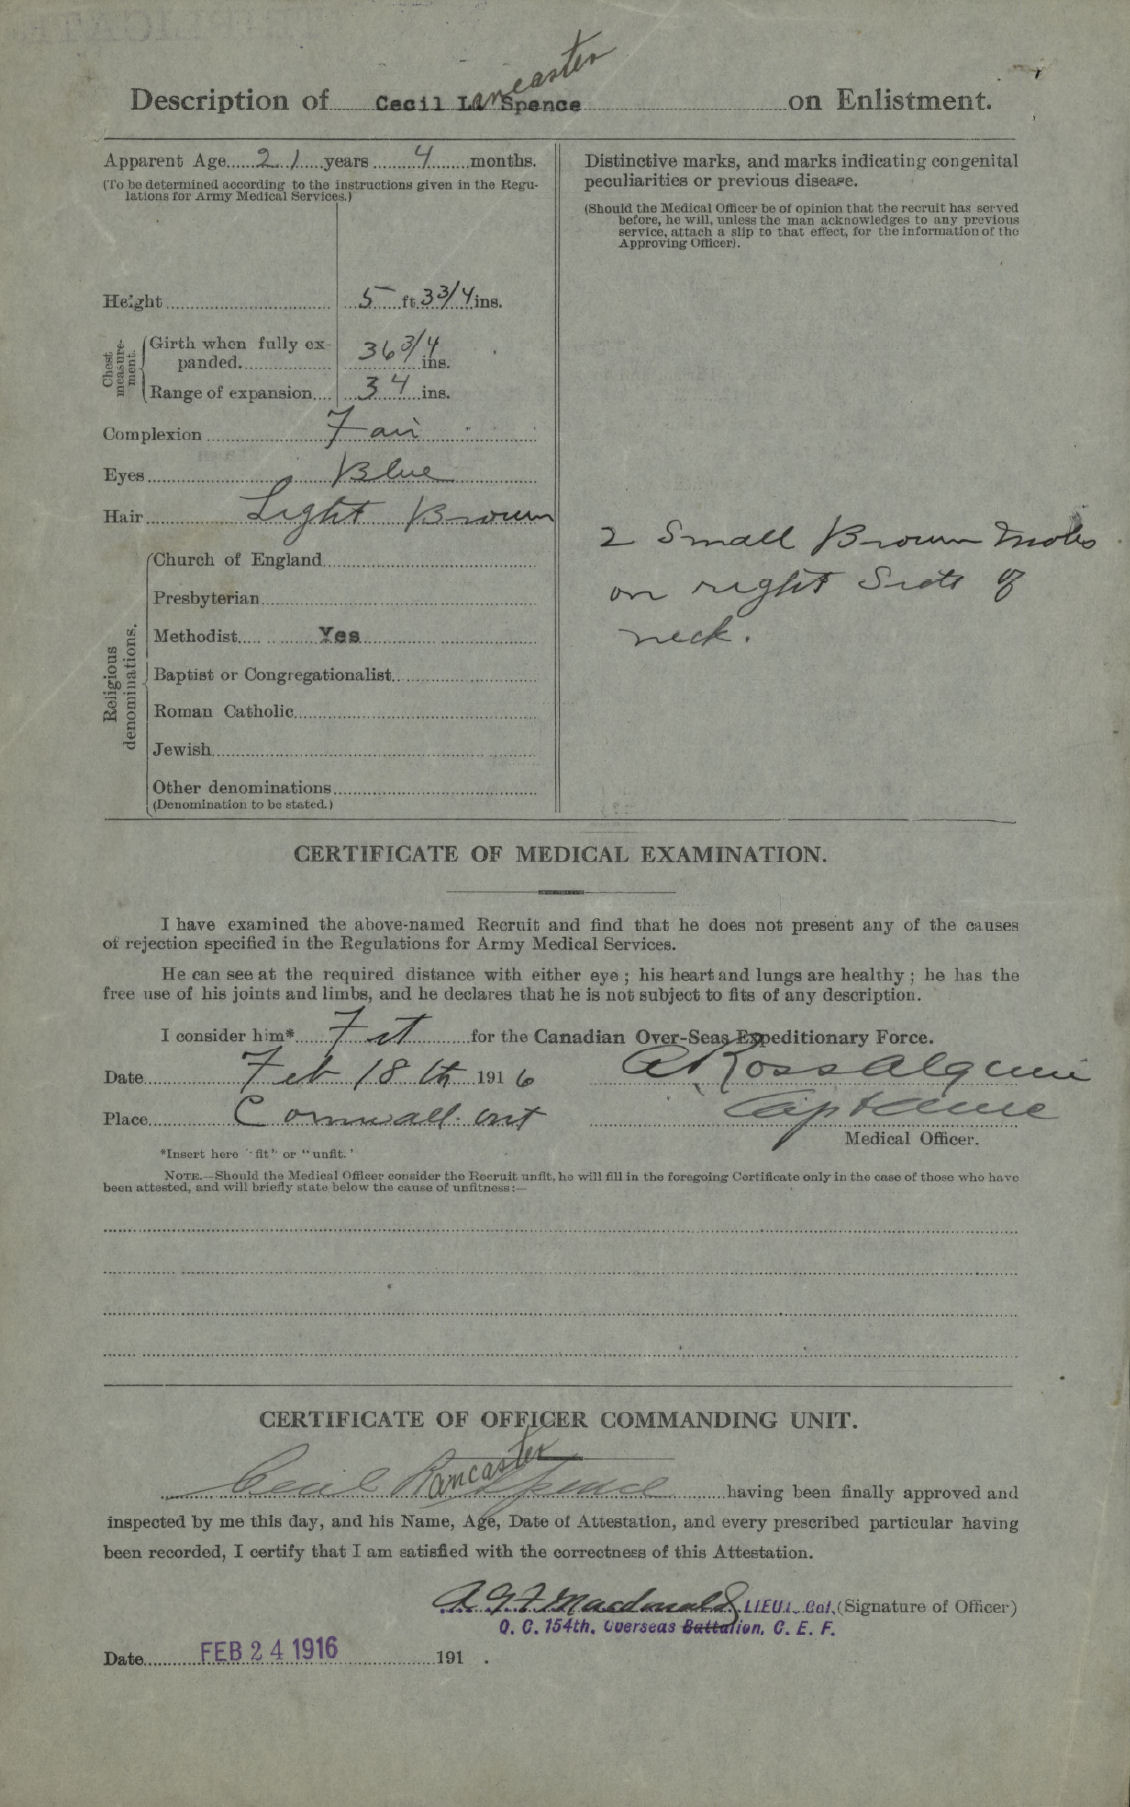 Description of Cecil Lancaster Spence on Enlistment.
Apparent Age 21 years 4 months.
(To be determined according to the instructions given in the Regu-
lations for Army Medical Services.)
Height 5 ft. 3 3/4 ins.
Chest measure-ment.
Girth when fully ex-
panded. 36 3/4 ins.
Range of expansion 34 ins.
Complexion Fair
Eyes Blue
Hair Light Brown
Religious denominations.
Church of England
Presbyterian
Methodist Yes
Baptist or Congregationalist
Roman Catholic
Jewish
Other denominations
(Denomination to be stated.)
Distinctive marks, and marks indicating congenital
peculiarities or previous disease.
(Should the Medical Officer be of opinion that the recruit has served
before, he will, unless the man acknowledges to any previous
service, attach a slip to that effect, for the information of the
Approving Officer).
2 Small Brown Moles
on right Side of
neck.
CERTIFICATE OF MEDICAL EXAMINATION.
I have examined the above-named Recruit and find that he does not present any of the causes
of rejection specified in the Regulations for Army Medical Services.
He can see at the required distance with either eye; his heart and lungs are healthy; he has the
free use of his joints and limbs, and he declares that he is not subject to fits of any description.
I consider him* Fit for the Canadian Over-Seas Expeditionary Force.
Date Feb 18th 1916
A Ross Alguire
Place Cornwall. Ont
Captain
Medical Officer.
*Insert here "fit" or "unfit."
NOTE.—Should the Medical Officer consider the Recruit unfit, he will fill in the foregoing Certificate only in the case of those who have
been attested, and will briefly state below the cause of unfitness:—
CERTIFICATE OF OFFICER COMMANDING UNIT.
Cecil Lancaster Spence having been finally approved and
inspected by me this day, and his Name, Age, Date of Attestation, and every prescribed particular having
been recorded, I certify that I am satisfied with the correctness of this Attestation.
A G F Macdonald LIEUT. Col. (Signature of Officer)
O. C. 154th. Overseas Battalion, C. E. F.
Date FEB 24 1916 191 .